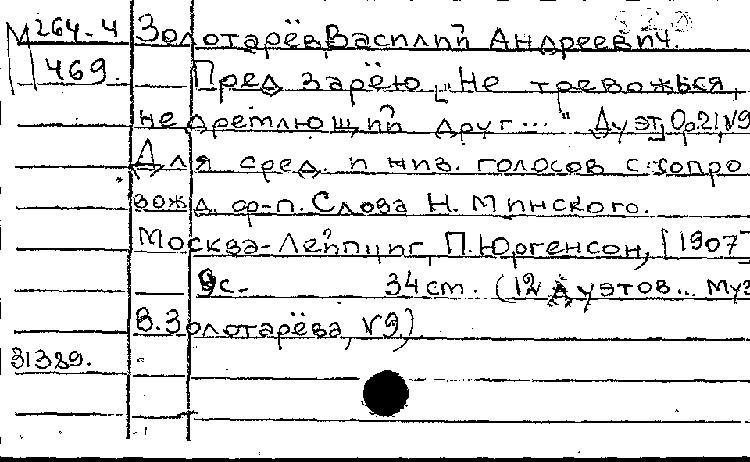 М 264-4 Золотарёв, Василий Андреевич.
469. Пред зарёю „Не тревожься,
не дремлющий друг..." Дуэт, Ор.21, №9
Для сред. и низ. голосов с сопро
вожд. ф-п. Слова Н. Минского.
Москва-Лейпциг, П. Юргенсон, [1907]
9с. 34 ст. (12 дуэтов... Муз
В. Золотарёва, №9.)
31389.